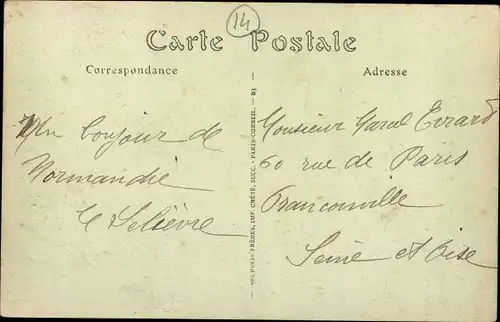 14
Carte Postale
Correspondance
Adresse
Un bonjour de
Normandie
E Lelièvre
Monsieur Marcel Evrard
60 rue de Paris
Franconville
Seine et Oise
FRÈRES, IMP. CRÉTÉ, SUCC. - PARIS-CORBEIL. - 23